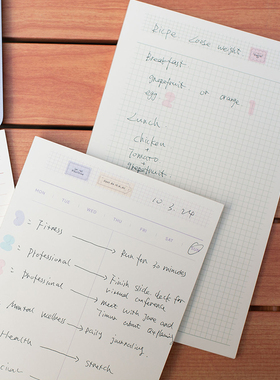 Ricpe loose weight
Breatfast
grapefruit or orange 1
egg 2
Lunch
chicken
+
Tomato
+
grapefruit
12.3.24
MON TUE WED THU FRI SAT
3: Fitness → Run for 20 minutes
: Professional → Finish slide deck for
virtual conference
: Professional → meet with Jane and
Timur about
Mental wellness → Daily journaling
Health → stretch